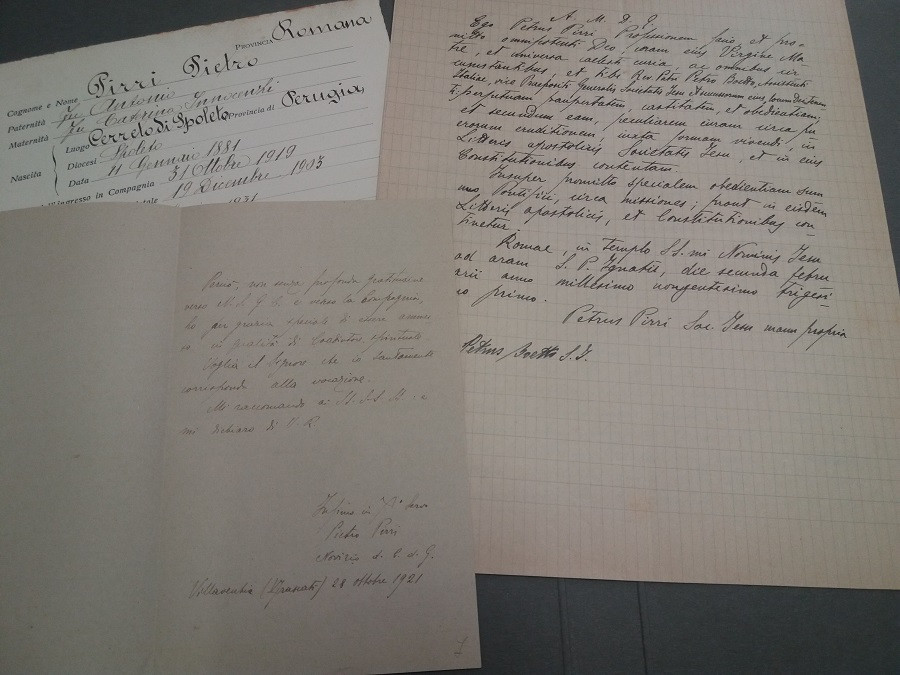 Provincia Romana
Cognome e Nome Pirri Pietro
Paternità fu Antonio
Maternità fu Caterina Innocenzi
Nascita
Luogo Cerreto di Spoleto Provincia di Perugia
Diocesi Spoleto
Data 11 Gennaio 1881
ingresso in Compagnia 31 Ottobre 1919
19 Dicembre 1903
1931
A. M. D. G.
Ego Petrus Pirri Professionem facio, et pro-
mitto omnipotenti Deo, coram eius Virgine Ma-
tre, et universa caelesti curia, ac omnibus cir-
cumstantibus, et tibi Rev. Patri Petro Boetto, Assistenti
Italiae, vice Praepositi Generalis Societatis Iesu et successorum eius, locum Dei tenenti
perpetuam paupertatem, castitatem, et obedientiam;
et secundum eam, peculiarem curam circa pu-
erorum eruditionem, iuxta formam vivendi, in
Litteris apostolicis Societatis Iesu, et in eius
Constitutionibus contentam.
Insuper promitto specialem obedientiam Sum
mo Pontifici, circa missiones; prout in eisdem
Litteris apostolicis, et Constitutionibus con-
tinetur.
Romae, in templo SS.mi Nominis Iesu
ad aram S. P. Ignatii, die secunda febru
arii anno millesimo nongentesimo trigesi
mo primo.
Petrus Pirri Soc. Iesu manu propria
Petrus Boetto S. I.
Perciò, non senza profonda gratitudine
verso N. S. G. C. e verso la Compagnia,
di essere ammes
so in qualità di Coadiutore spirituale
Voglia il Signore che io santamente
corrisponda alla vocazione.
Mi raccomando ai SS. SS. e
mi dichiaro di V. R.
Infimo in
Pietro Pirri
Novizio d. C. d. G.
28 ottobre 1921